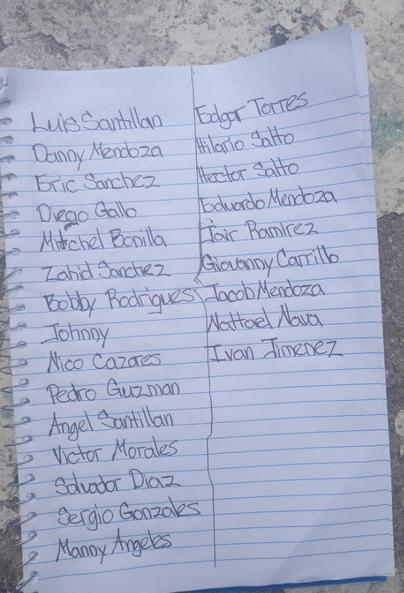 Luis Santillan
Danny Mendoza
Eric Sanchez
Diego Gallo
Mitchel Bonilla
Zahid Sanchez
Bobby Rodrigues
Johnny
Nico Cazares
Pedro Guzman
Angel Santillan
Victor Morales
Salvador Diaz
Sergio Gonzales
Manny Angeles
Edgar Torres
Hilario Salto
Hector Salto
Eduardo Mendoza
Jair Ramirez
Giovanny Carrillo
Jacob Mendoza
Nattael Nava
Ivan Jimenez